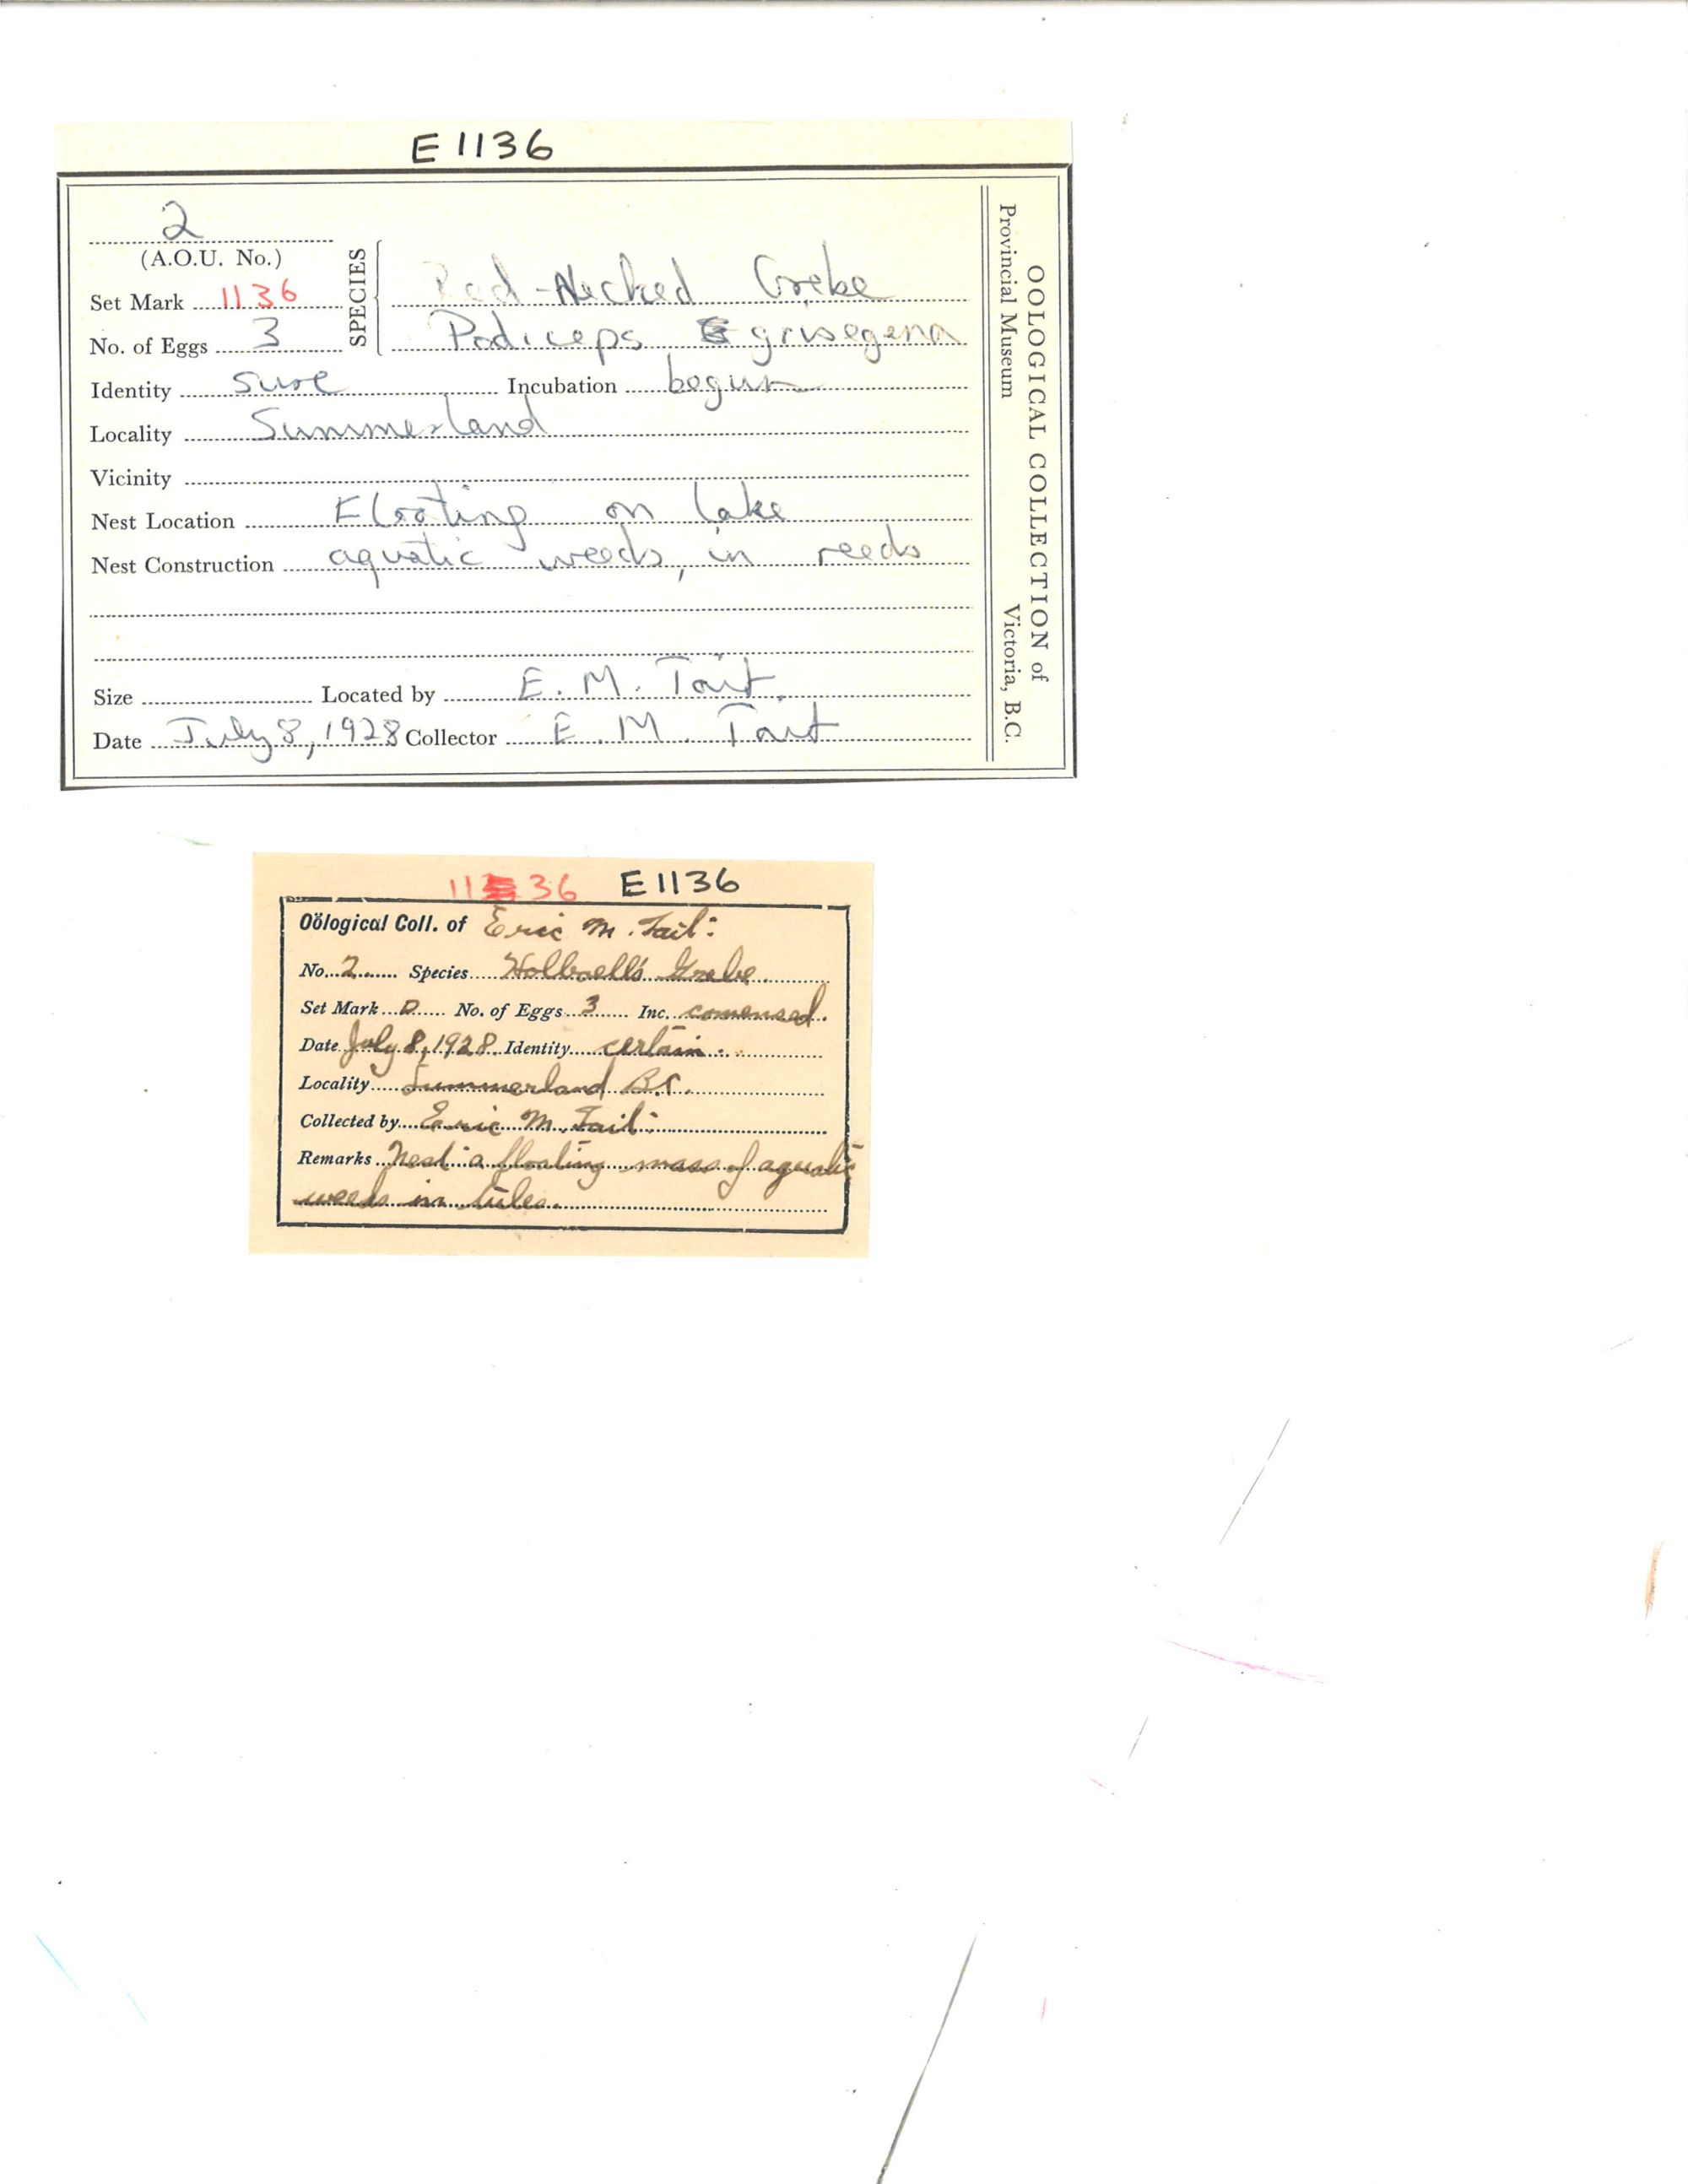 E 1136
2
(A.O.U. No.)
SPECIES
Red-Necked Grebe
Set Mark 1136
Podiceps grisegena
No. of Eggs 3
Identity sure Incubation begun
Locality Summerland
Vicinity
Nest Location Floating on lake
Nest Construction aquatic weeds, in reeds
Size Located by E. M. Tait.
Date July 8, 1928 Collector E. M. Tait
OOLOGICAL COLLECTION of
Provincial Museum Victoria, B.C.
1136 E1136
Oölogical Coll. of Eric M. Tait.
No. 2 Species Holboell's Grebe
Set Mark D No. of Eggs 3 Inc. comensed.
Date July 8, 1928. Identity certain.
Locality Summerland B.C.
Collected by Eric M. Tait.
Remarks Nest a floating mass of aquatic
weeds in tules.